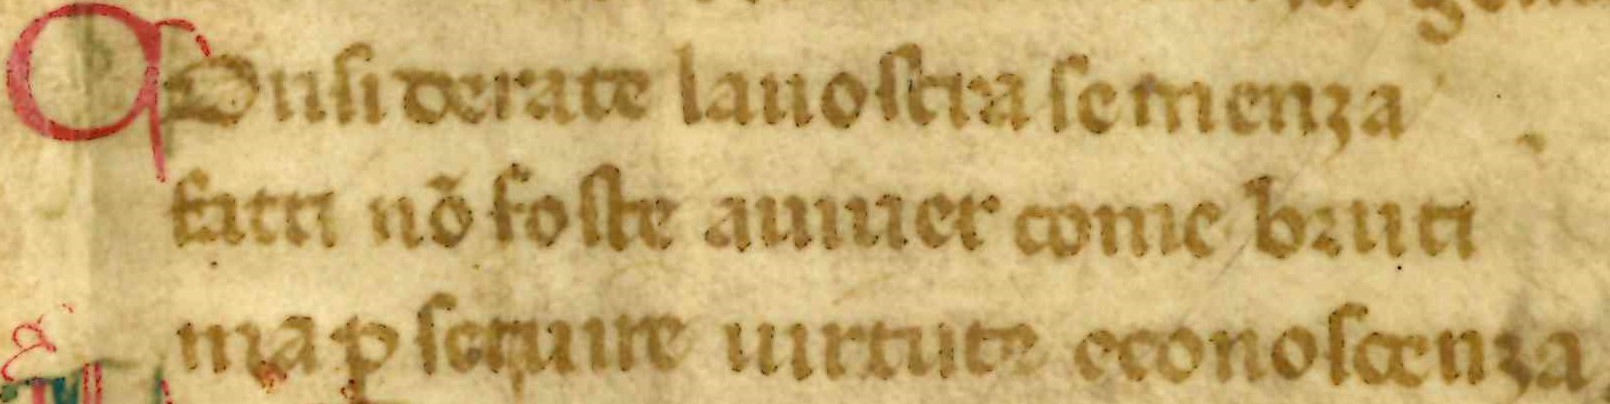 COnsiderate lauostra semenza
fatti nõ foste auiuer come bruti
ma ꝑ seguire uirtute econoscenza